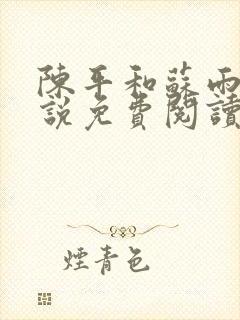 陳平和蘇雨
說免費閱讀
煙青色